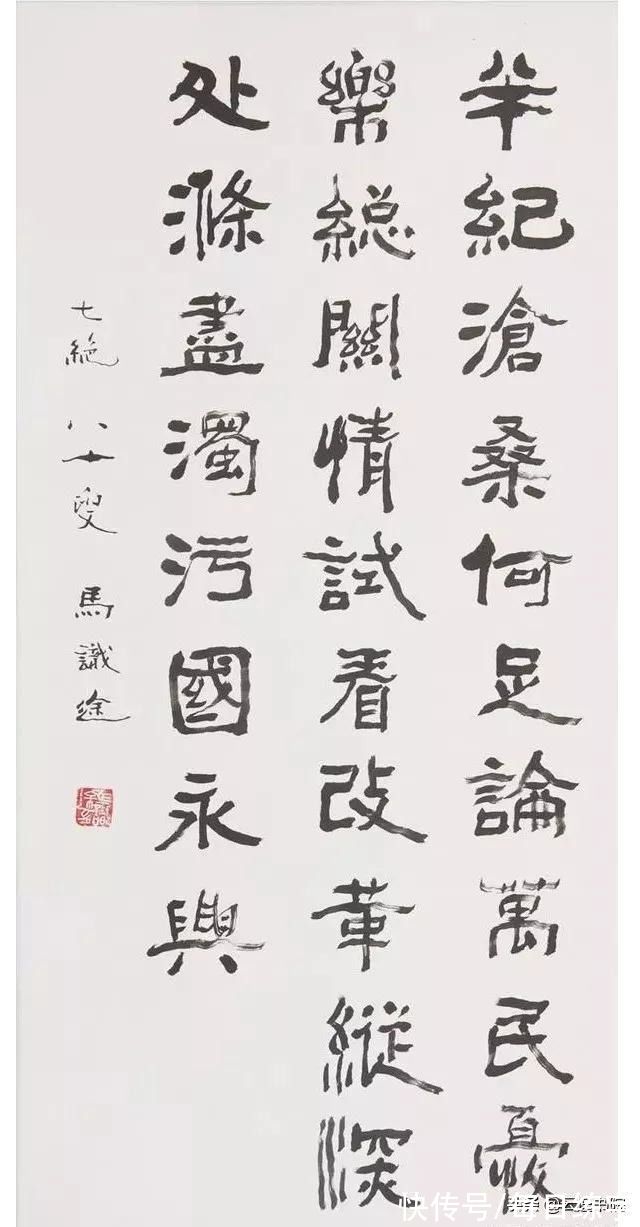 半紀滄桑何足論萬民憂
樂総關情試看改革縱深
处滌盡濁污國永興
七絶 八十叟 馬識途
快传号/每日练